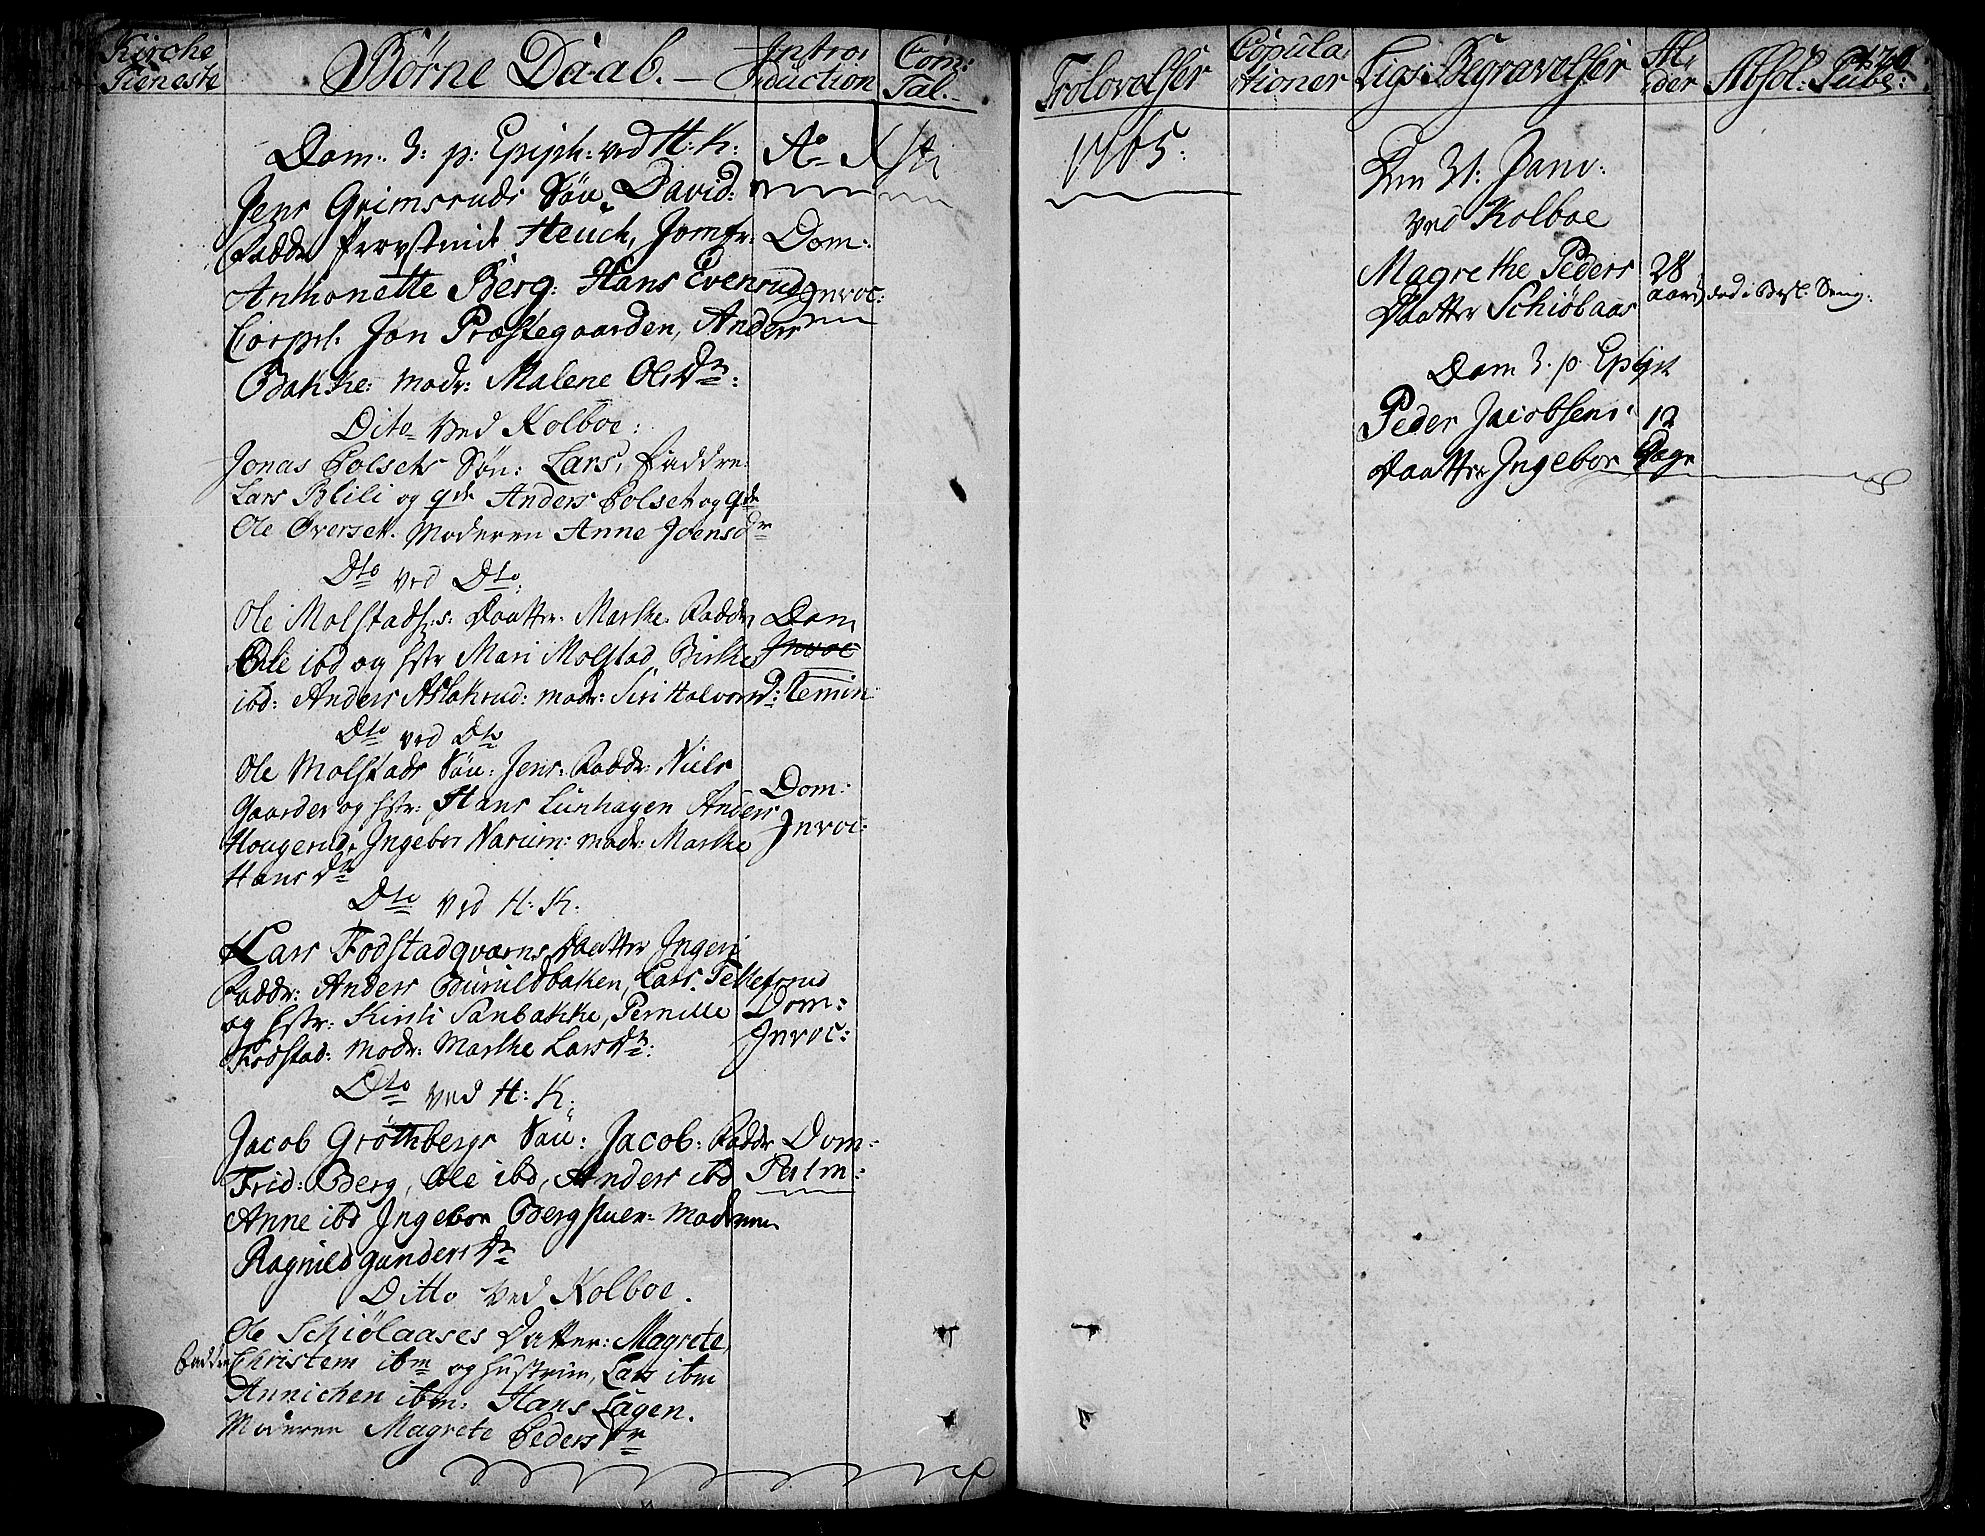 Kirche
Tieneste
Børne Daab.
Intro
duction
Com:
Tal.
Dom. 3: p: Epiph: ved H: K:
Ao Xsti
Jens Grimsruds Søn David:
Fadd: Heuch, Jomfr:
Dom:
Anthonette Berg: Hans Evenrud
Invoc:
Corprl. Jon Præstegaarden, Anders
Bakke: modr: Malene Ols Dr:
Dito ved Kolboe:
Jonas Polsets Søn: Lars, Faddre:
Lars Blili og qde Anders Polset og qde
Ole Øverset. Moderen Anne Joensdr
Dto ved Dto:
Ole Molstads: Daatter: Marthe. Faddr
Dom
Ole ibd og hstr Mari Molstad, Birthe
Invoc
ibd: Anders Aslakrud: modr: Siri Halvors D:
Remin
Dto ved Dto
Ole Molstads Søn: Jens: Fadd: Niels
Dom:
Gaarder og hstr: Hans Lunhagen Anders
Invoc:
Hougerud, Ingebor Narum: modr: Marthe
Hans Dr
Dto ved H: K:
Lars Fodstadqværns Daatter Ingeri
Faddr: Anders Buruldbaken, Lars Tellefsrud
Dom:
og hstr: Kirsti Sanbakke, Pernille
Invoc:
Fodstad: modr: Marthe Lars Dr:
Dto ved H: K:
Jacob Grøthbergs Søn: Jacob: Faddr
Dom:
Frid: Berg, Ole ibd, Anders ibd
Palm:
Anne ibd Ingebor Berg moderen
Ragnild gunders Dr
Ditto ved Kolboe.
Ole Schiølaases Datter: Magrete,
Faddre Christen ibm og hustrue, Lars ibm
Annichen ibm: Hans Lagen.
Moderen Magrete Peders Dr
Trolovelser
Copula
tioner
Ligs: Begravelser
Al
der
Absol: Pube:
120
1765:
Den 31: Janv:
ved Kolboe
Magrethe Peders
28
Daatter Schiølaas
aar
død i Seng:
Dom 3. p. Epiph
Peder Jacobsens
12
Daatter Ingebor
Dage